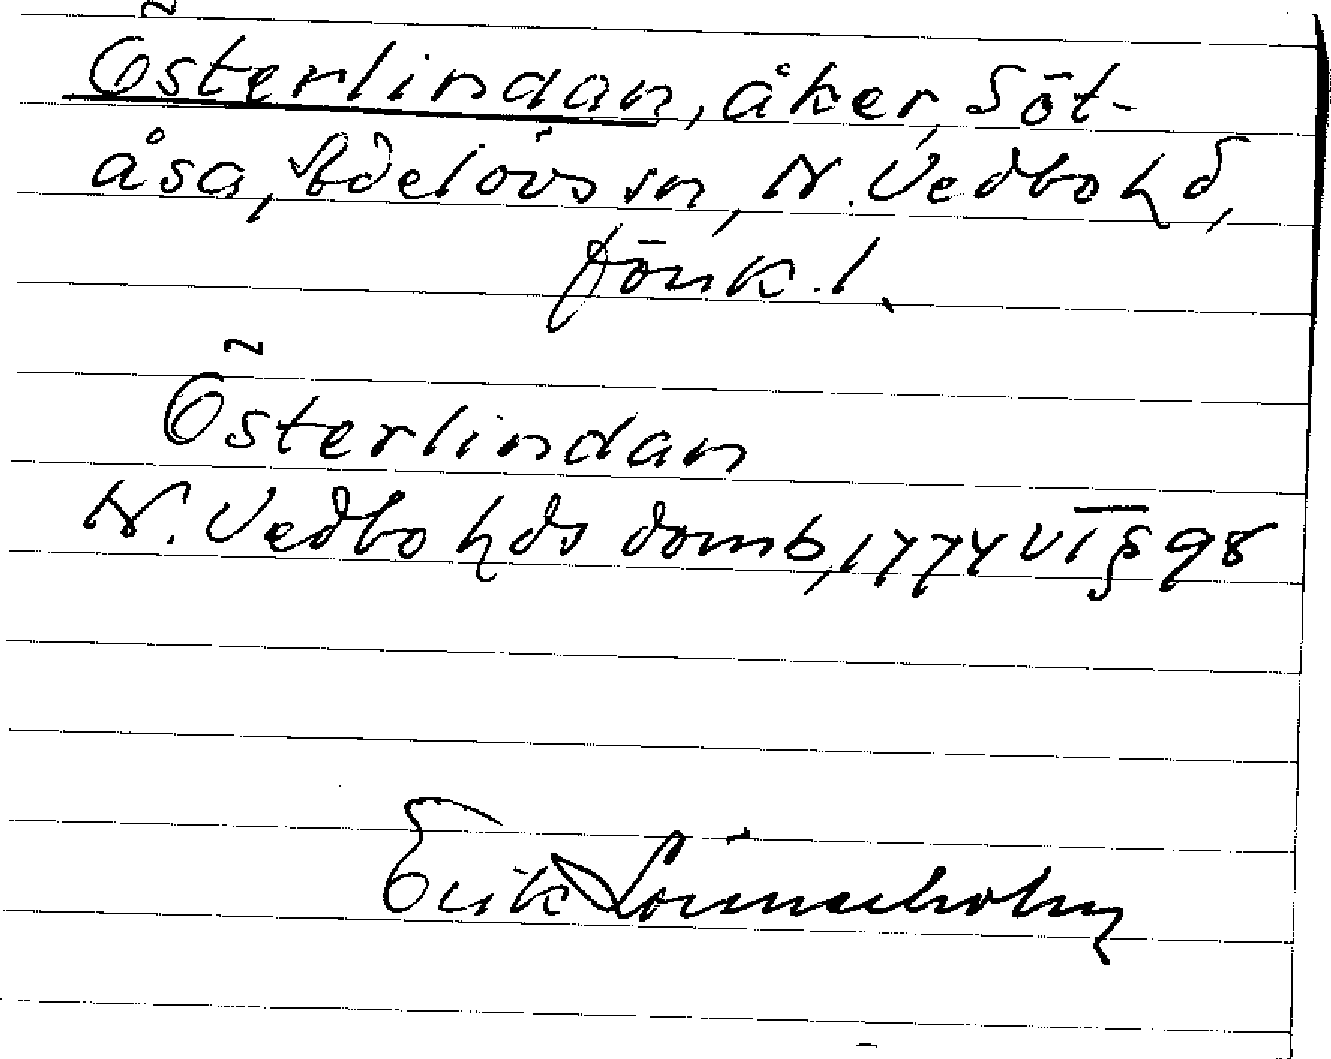 Österlindan, åker, Söt-
åsa, Adelövs sn, N. Vedbo hd,
Jönk. l.
Österlindan
N. Vedbo hds domb, 1774 VI § 98
Erik